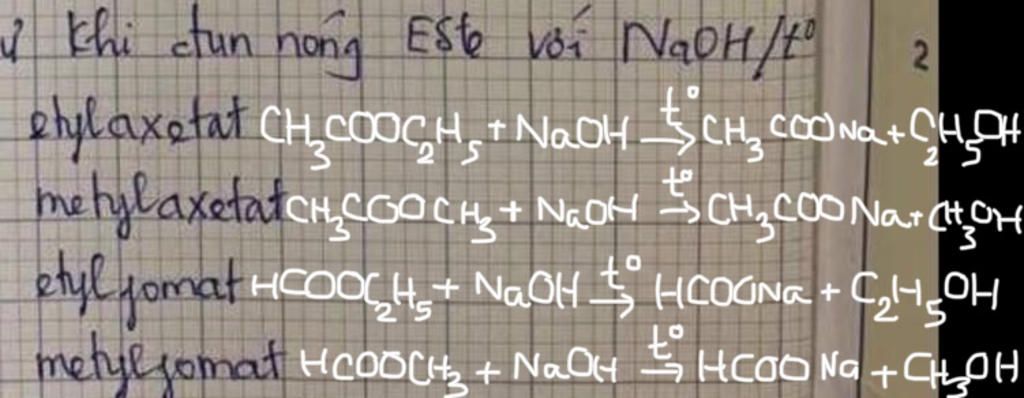 khi đun nóng Este với NaOH/t° 2
etylaxetat CH₃COOC₂H₅ + NaOH →t° CH₃COONa + C₂H₅OH
metylaxetat CH₃COOCH₃ + NaOH →t° CH₃COONa + CH₃OH
etylfomat HCOOC₂H₅ + NaOH →t° HCOONa + C₂H₅OH
metylfomat HCOOCH₃ + NaOH →t° HCOONa + CH₃OH